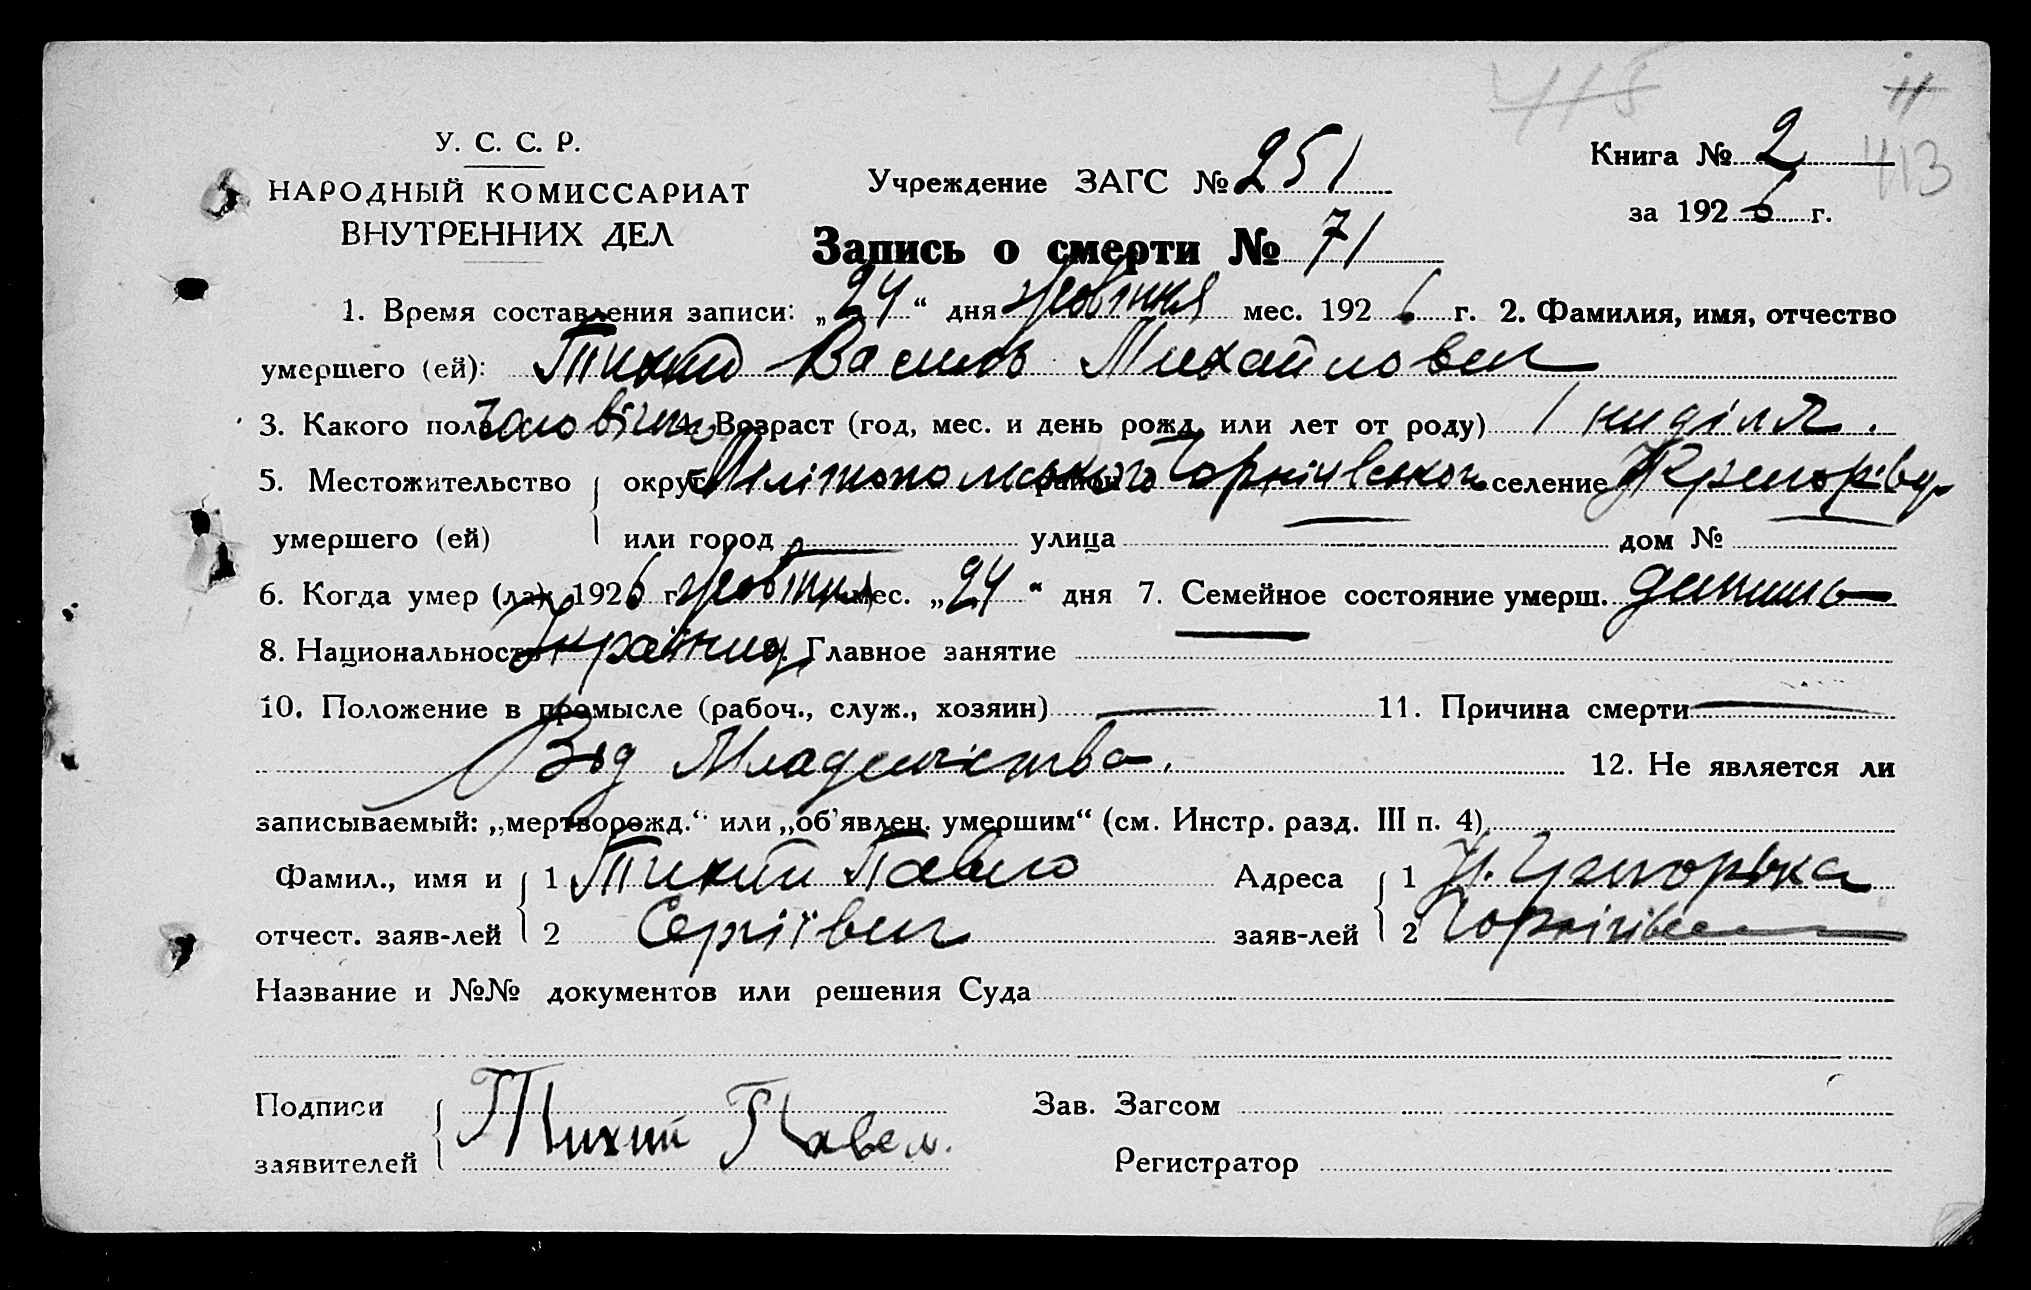 415 11
У. С. С. Р.
НАРОДНЫЙ КОМИССАРИАТ
ВНУТРЕННИХ ДЕЛ
Учреждение ЗАГС № 251
Книга № 2 413
за 1926 г.
Запись о смерти № 71
1. Время составления записи: „24“ дня Жовтня мес. 1926 г. 2. Фамилия, имя, отчество
умершего (ей): Тихий Василь Михайлович
3. Какого пола чоловічого 4. Возраст (год, мес. и день рожд. или лет от роду) 1 ниділя.
5. Местожительство округ Мелітопольського район Чернігівського селение
умершего (ей) или город — улица — дом № —
6. Когда умер (ла): 1926 г. Жовтня мес. „24“ дня 7. Семейное состояние умерш.
8. Национальность Українец Главное занятие —
10. Положение в промысле (рабоч., служ., хозяин) — 11. Причина смерти —
Від Младенчества. 12. Не является ли
записываемый: „мертворожд.“ или „об'явлен. умершим“ (см. Инстр. разд. III п. 4)
Фамил., имя и 1 Тихий Павло Адреса 1
отчест. заяв-лей 2 Сергіївич заяв-лей 2
Название и №№ документов или решения Суда
Подписи Тихий Павел. Зав. Загсом
заявителей Регистратор